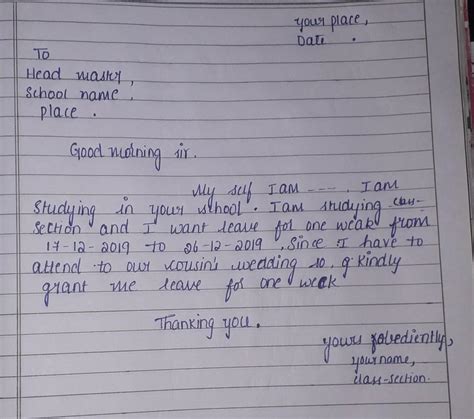 your place,
Date .
To
Head master,
School name,
place .
Good morning sir.
My self I am ----. I am
Studying in your school. I am studying class-
section and I want leave for one weak from
17-12-2019 to 26-12-2019. Since I have to
attend to our cousin's wedding so. g kindly
grant me leave for one week
Thanking you.
yours fobediently,
yourname,
class-section.